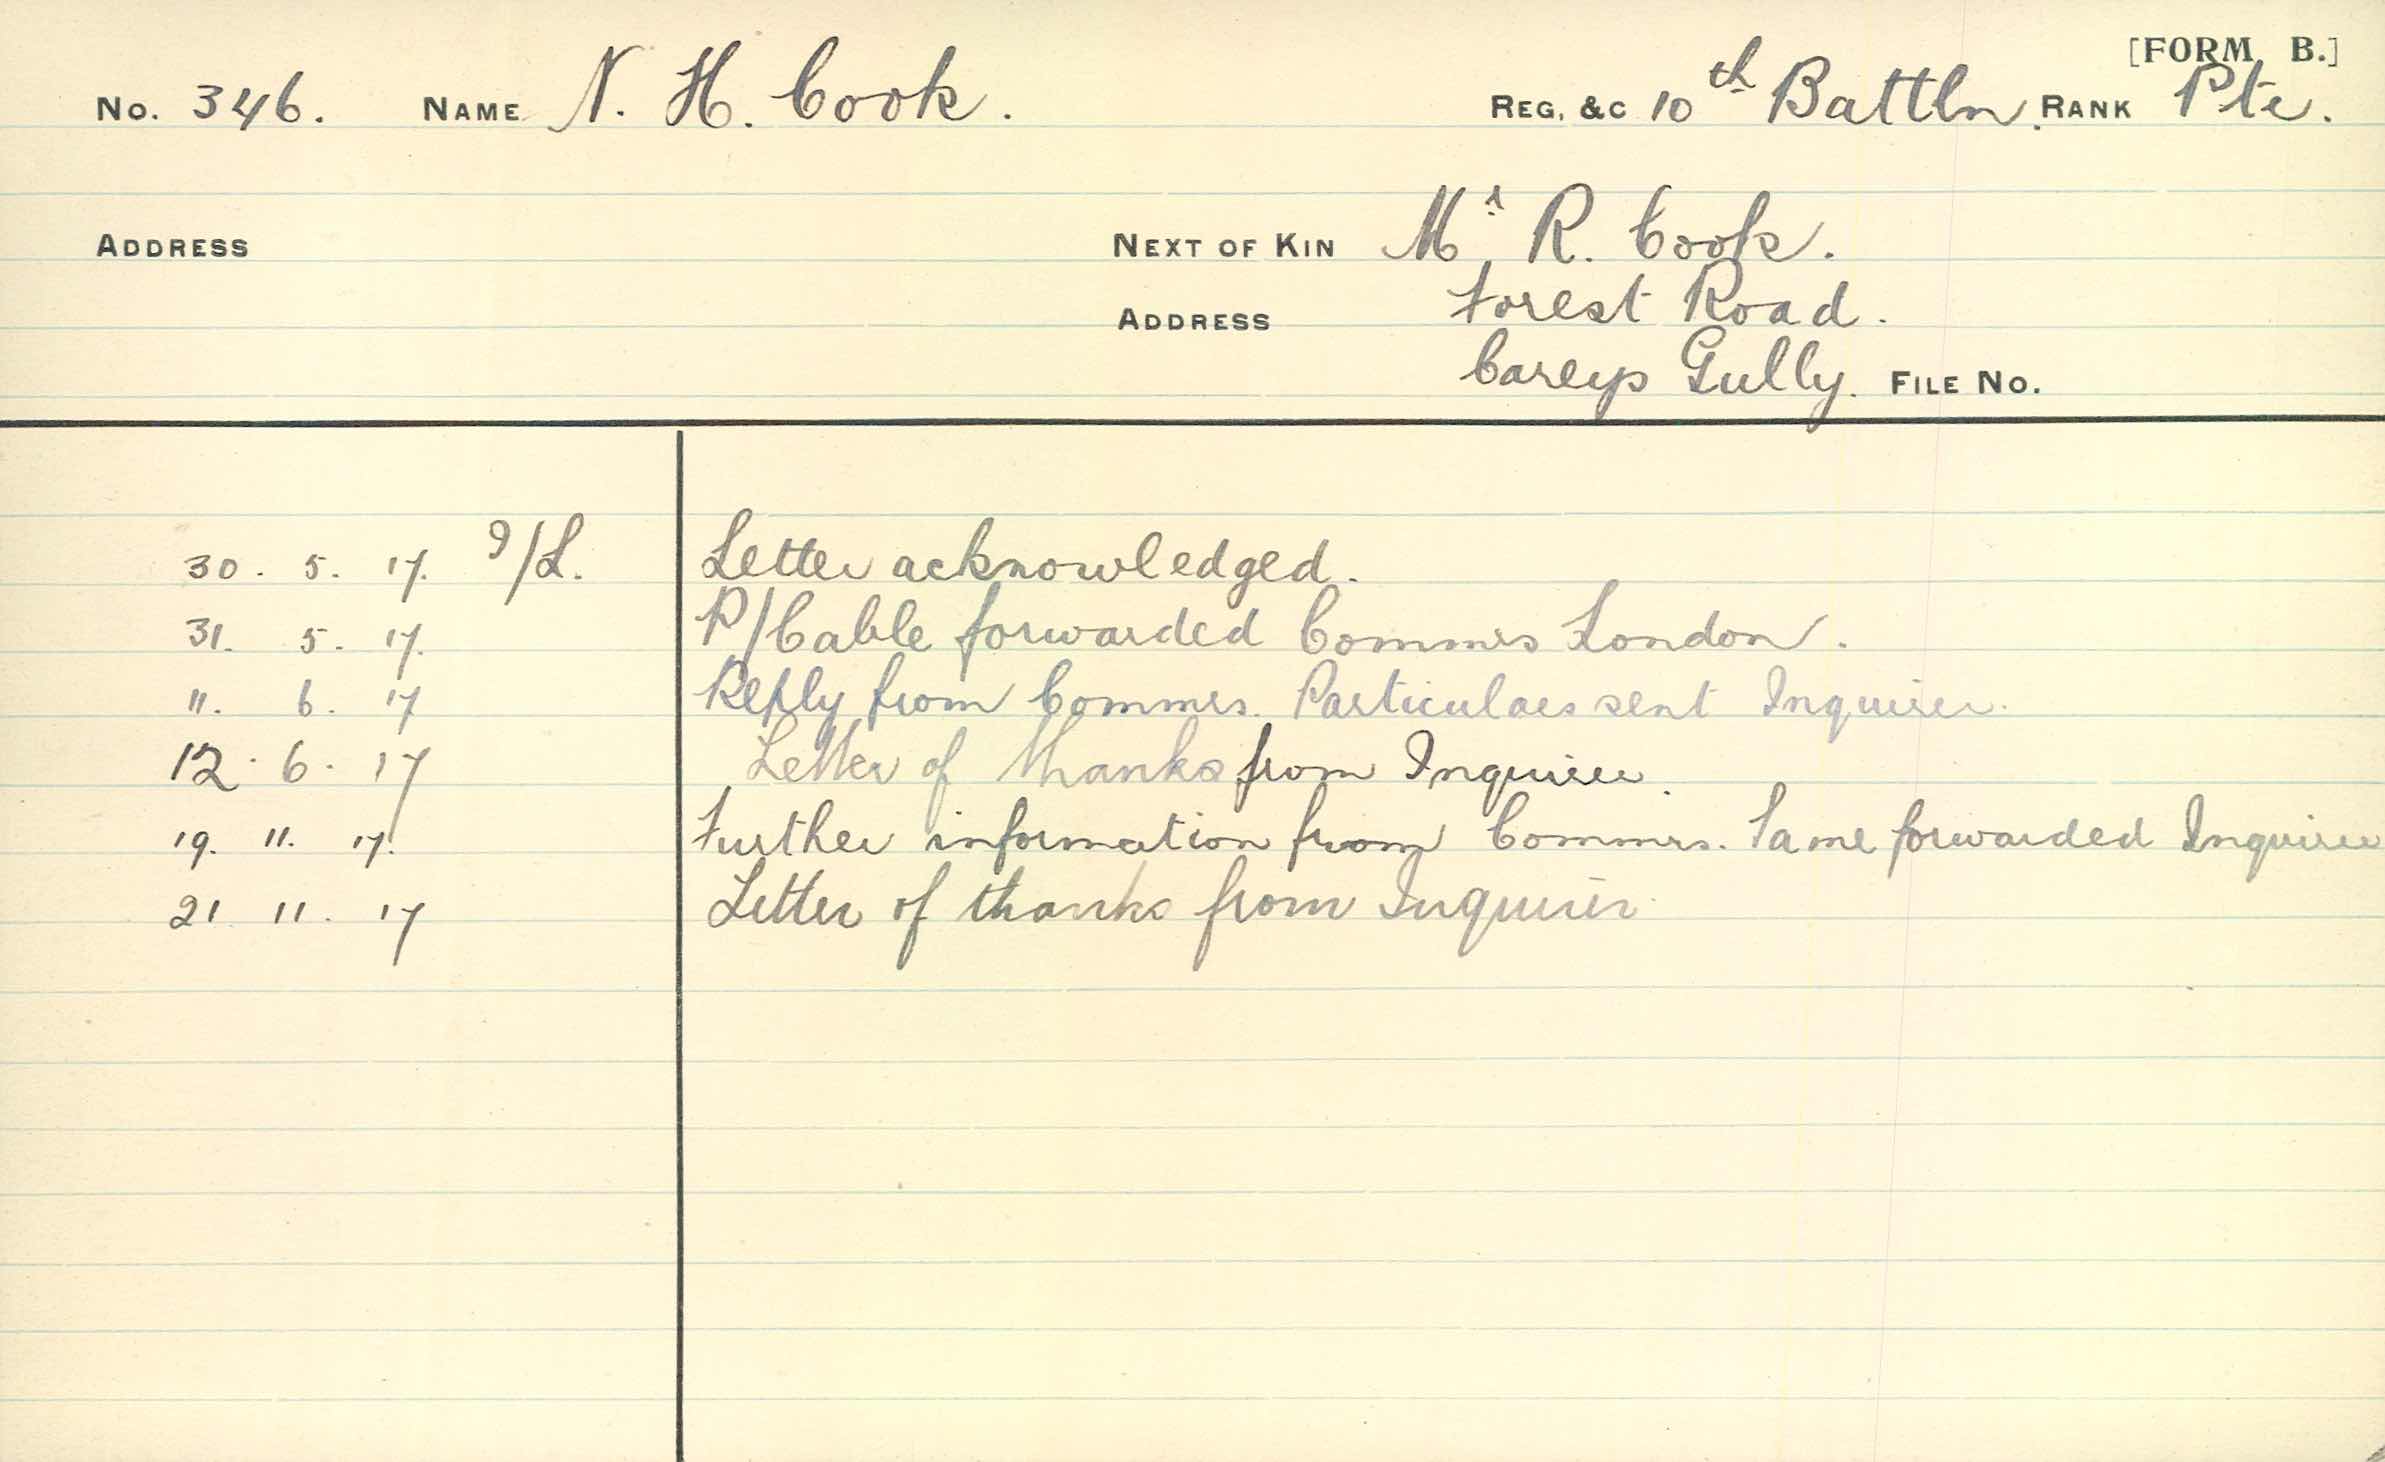 [FORM B.]
No. 346. NAME N. H. Cook. REG. &C 10th Battln. RANK Pte.
ADDRESS NEXT OF KIN Mr R. Cook.
ADDRESS Forest Road.
Careys Gully. FILE No.
30. 5. 17. 9/L. Letter acknowledged.
31. 5. 17. P/Cable forwarded Commrs London.
11. 6. 17 Reply from Commrs. Particulars sent Inquirer.
12. 6. 17 Letter of thanks from Inquirer.
19. 11. 17. Further information from Commrs. Same forwarded Inquirer
21. 11. 17 Letter of thanks from Inquirer